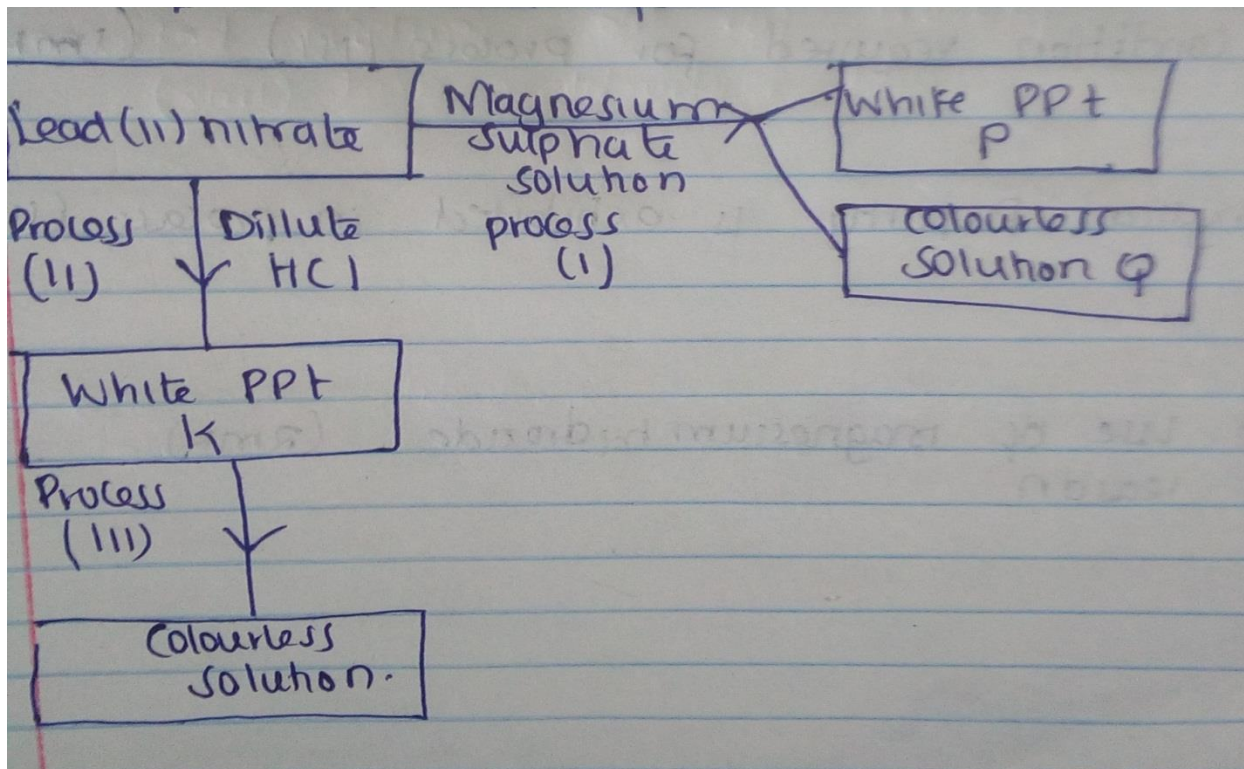 Lead(11) nitrate
Magnesium
sulphate
solution
process
(1)
White PPt
P
colourless
solution Q
Process
(11)
Dillute
HCl
White PPt
K
Process
(111)
Colourless
solution.